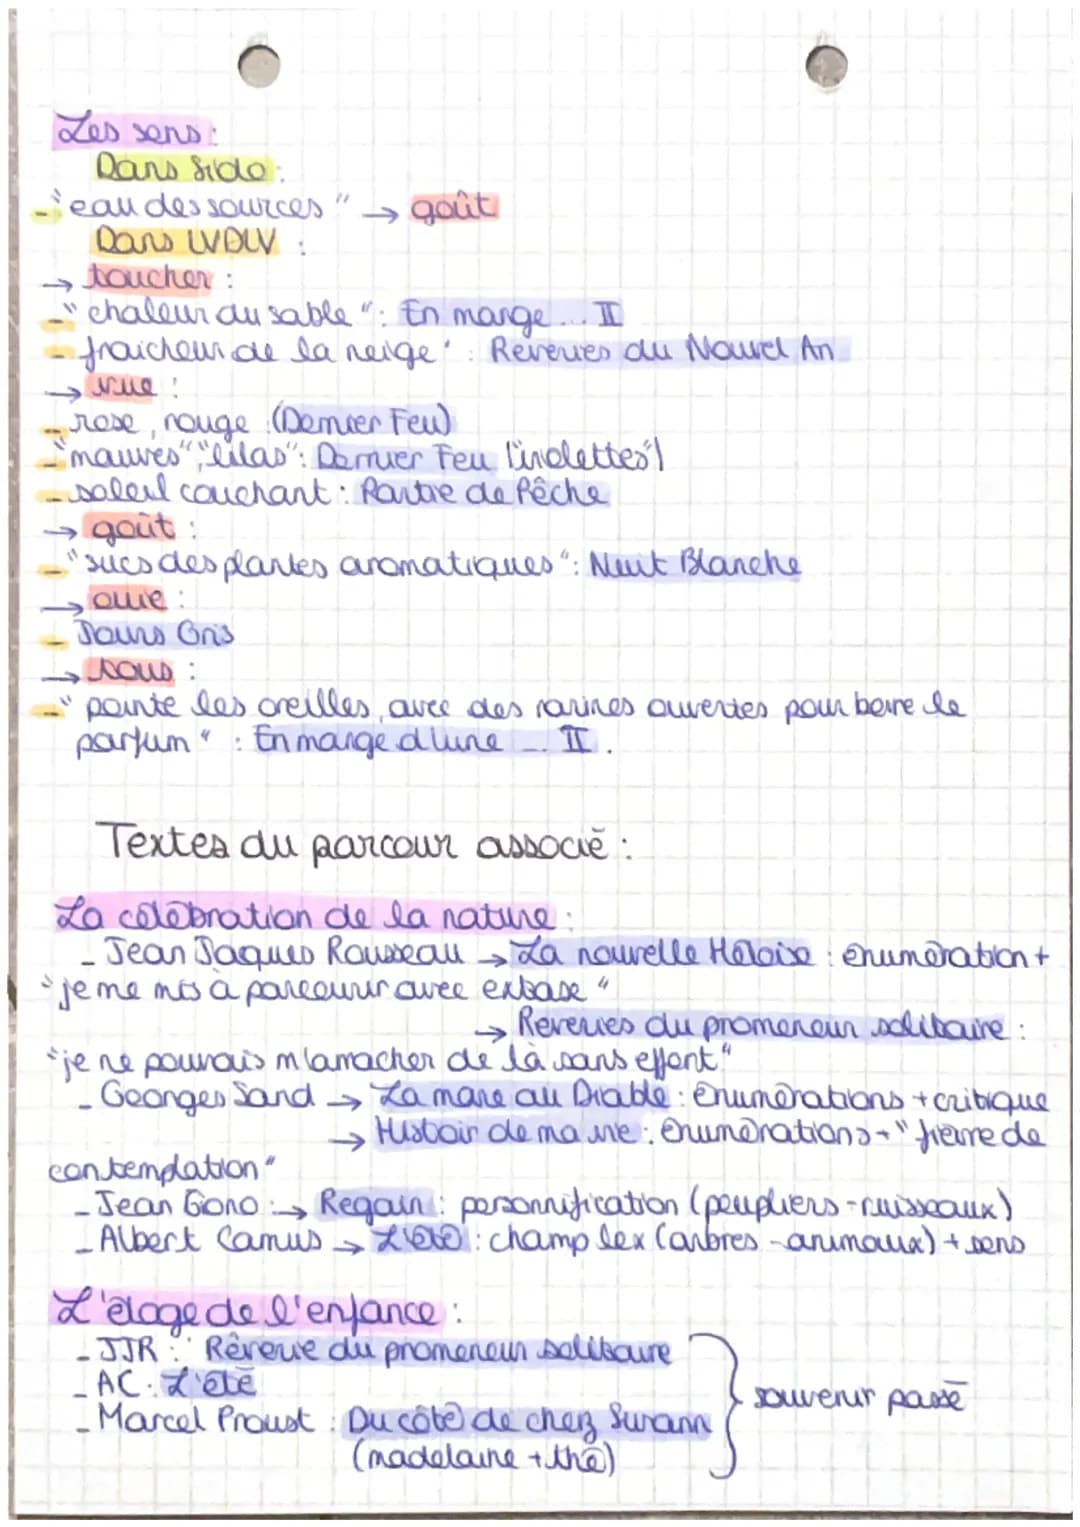 Les sens :
Dans Sido :
- "eau des sources" → goût
Dans LVDLV :
→ toucher :
- "chaleur du sable" : En marge ... II
- fraicheur de la neige" : Reveries du Nouvel An
→ vue :
- rose, rouge (Dernier Feu)
- "mauves", "lilas" : Dernier Feu ("violettes")
- soleil couchant : Partie de Pêche
→ goût :
- "sucs des plantes aromatiques" : Nuit Blanche
→ ouie :
- Jours Gris
→ tous :
- " pointe les oreilles, avec des narines ouvertes pour boire le
parfum" : En marge d'une ... II.
Textes du parcour associé :
La célébration de la nature :
- Jean Jaques Rousseau → La nouvelle Héloïse : énumération +
"je me mis à parcourir avec extase"
→ Reveries du promeneur solitaire :
"je ne pouvais m'arracher de là sans effort"
- Georges Sand → La mare au Diable : énumérations + critique
→ Histoir de ma vie : énumérations + "fièvre de
contemplation"
- Jean Giono : → Regain : personnification (peupliers - ruisseaux)
- Albert Camus → L'été : champ lex (arbres - animaux) + sens
L'éloge de l'enfance :
- JJR : Rêverie du promeneur solitaire
- AC : L'été
- Marcel Proust : Du côté de chez Swann
(madelaine + thé)
souvenir passé